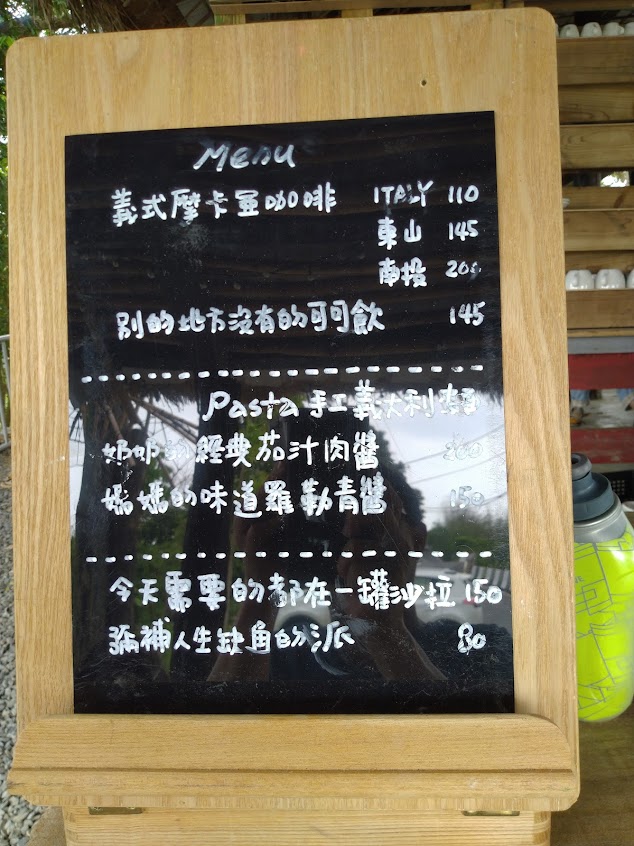 Menu
義式摩卡壺咖啡 ITALY 110
東山 145
南投 200
別的地方沒有的可可飲 145
Pasta 手工義大利麵
奶奶的經典茄汁肉醬 200
媽媽的味道羅勒青醬 150
今天需要的都在一罐沙拉 150
彌補人生缺角的派 80